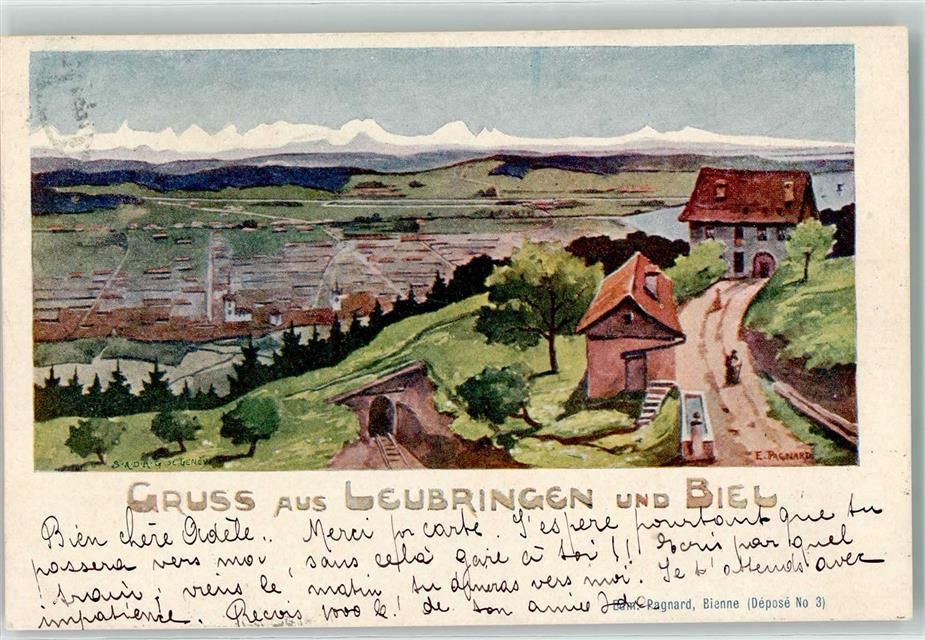 S.A.D.A.G sc. GENÈVE
E. PAGNARD
GRUSS AUS LEUBRINGEN UND BIEL
Bien chère Adèle.. Merci pr carte. J'espère pourtant que tu
passera vers moi, sans cellà gare à toi!! Ecris par quel
train; viens le matin, tu dîneras vers moi. Je t'attends avec
impatience. Reçois 1000 k! de ton amie Ida
Pagnard, Bienne (Déposé No 3)